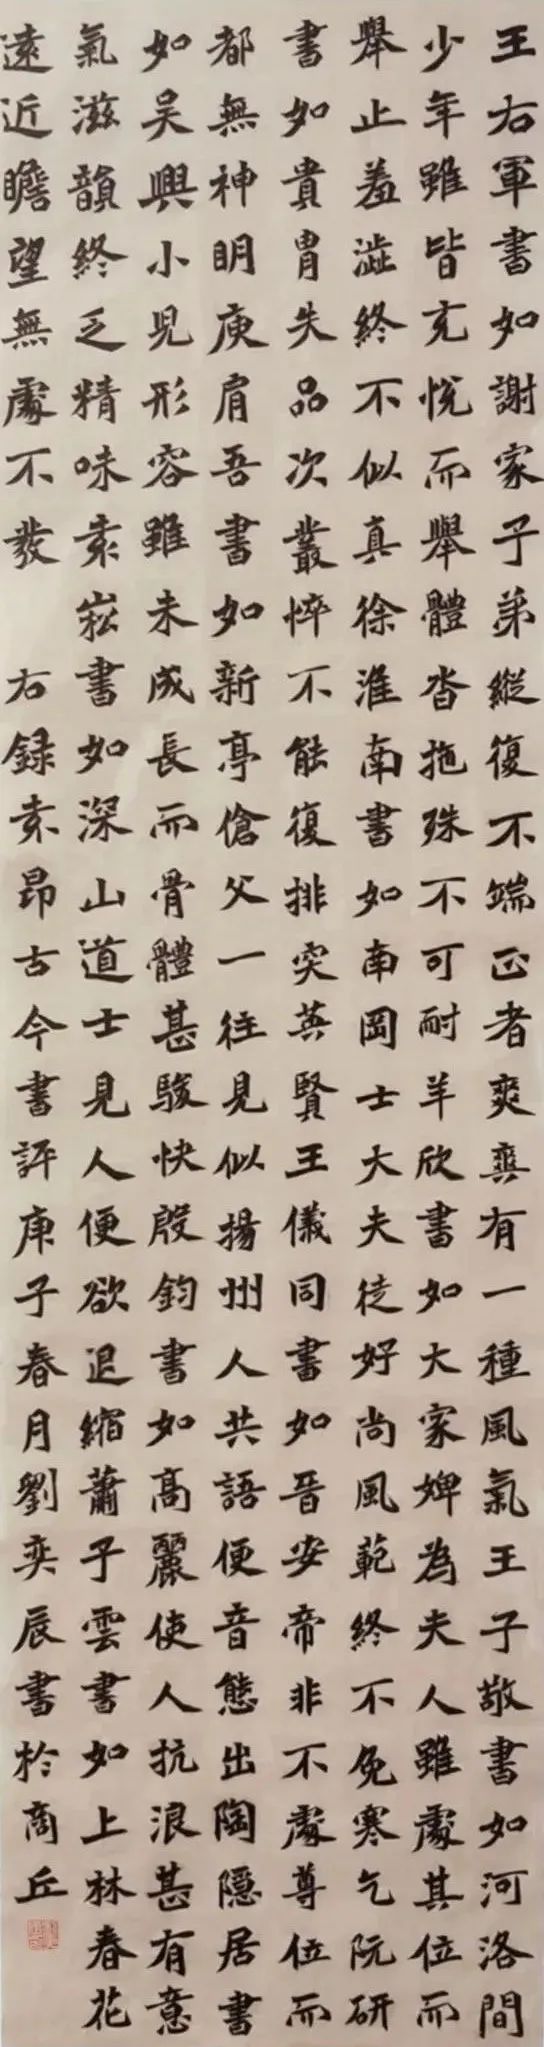 王右軍書如謝家子弟縱復不端正者爽爽有一種風氣王子敬書如河洛間
少年雖皆充悅而舉體沓拖殊不可耐羊欣書如大家婢為夫人雖處其位而
舉止羞澁終不似真徐淮南書如南岡士大夫徒好尚風範終不免寒乞阮研
書如貴胄失品次叢悴不能復排突英賢王儀同書如晉安帝非不處尊位而
都無神明庾肩吾書如新亭傖父一往見似揚州人共語便音態出陶隱居書
如吴興小兒形容雖未成長而骨體甚駿快殷鈞書如高麗使人抗浪甚有意
氣滋韻終乏精味袁崧書如深山道士見人便欲退縮蕭子雲書如上林春花
遠近瞻望無處不發 右録袁昂古今書評庚子春月劉奕辰書於商丘